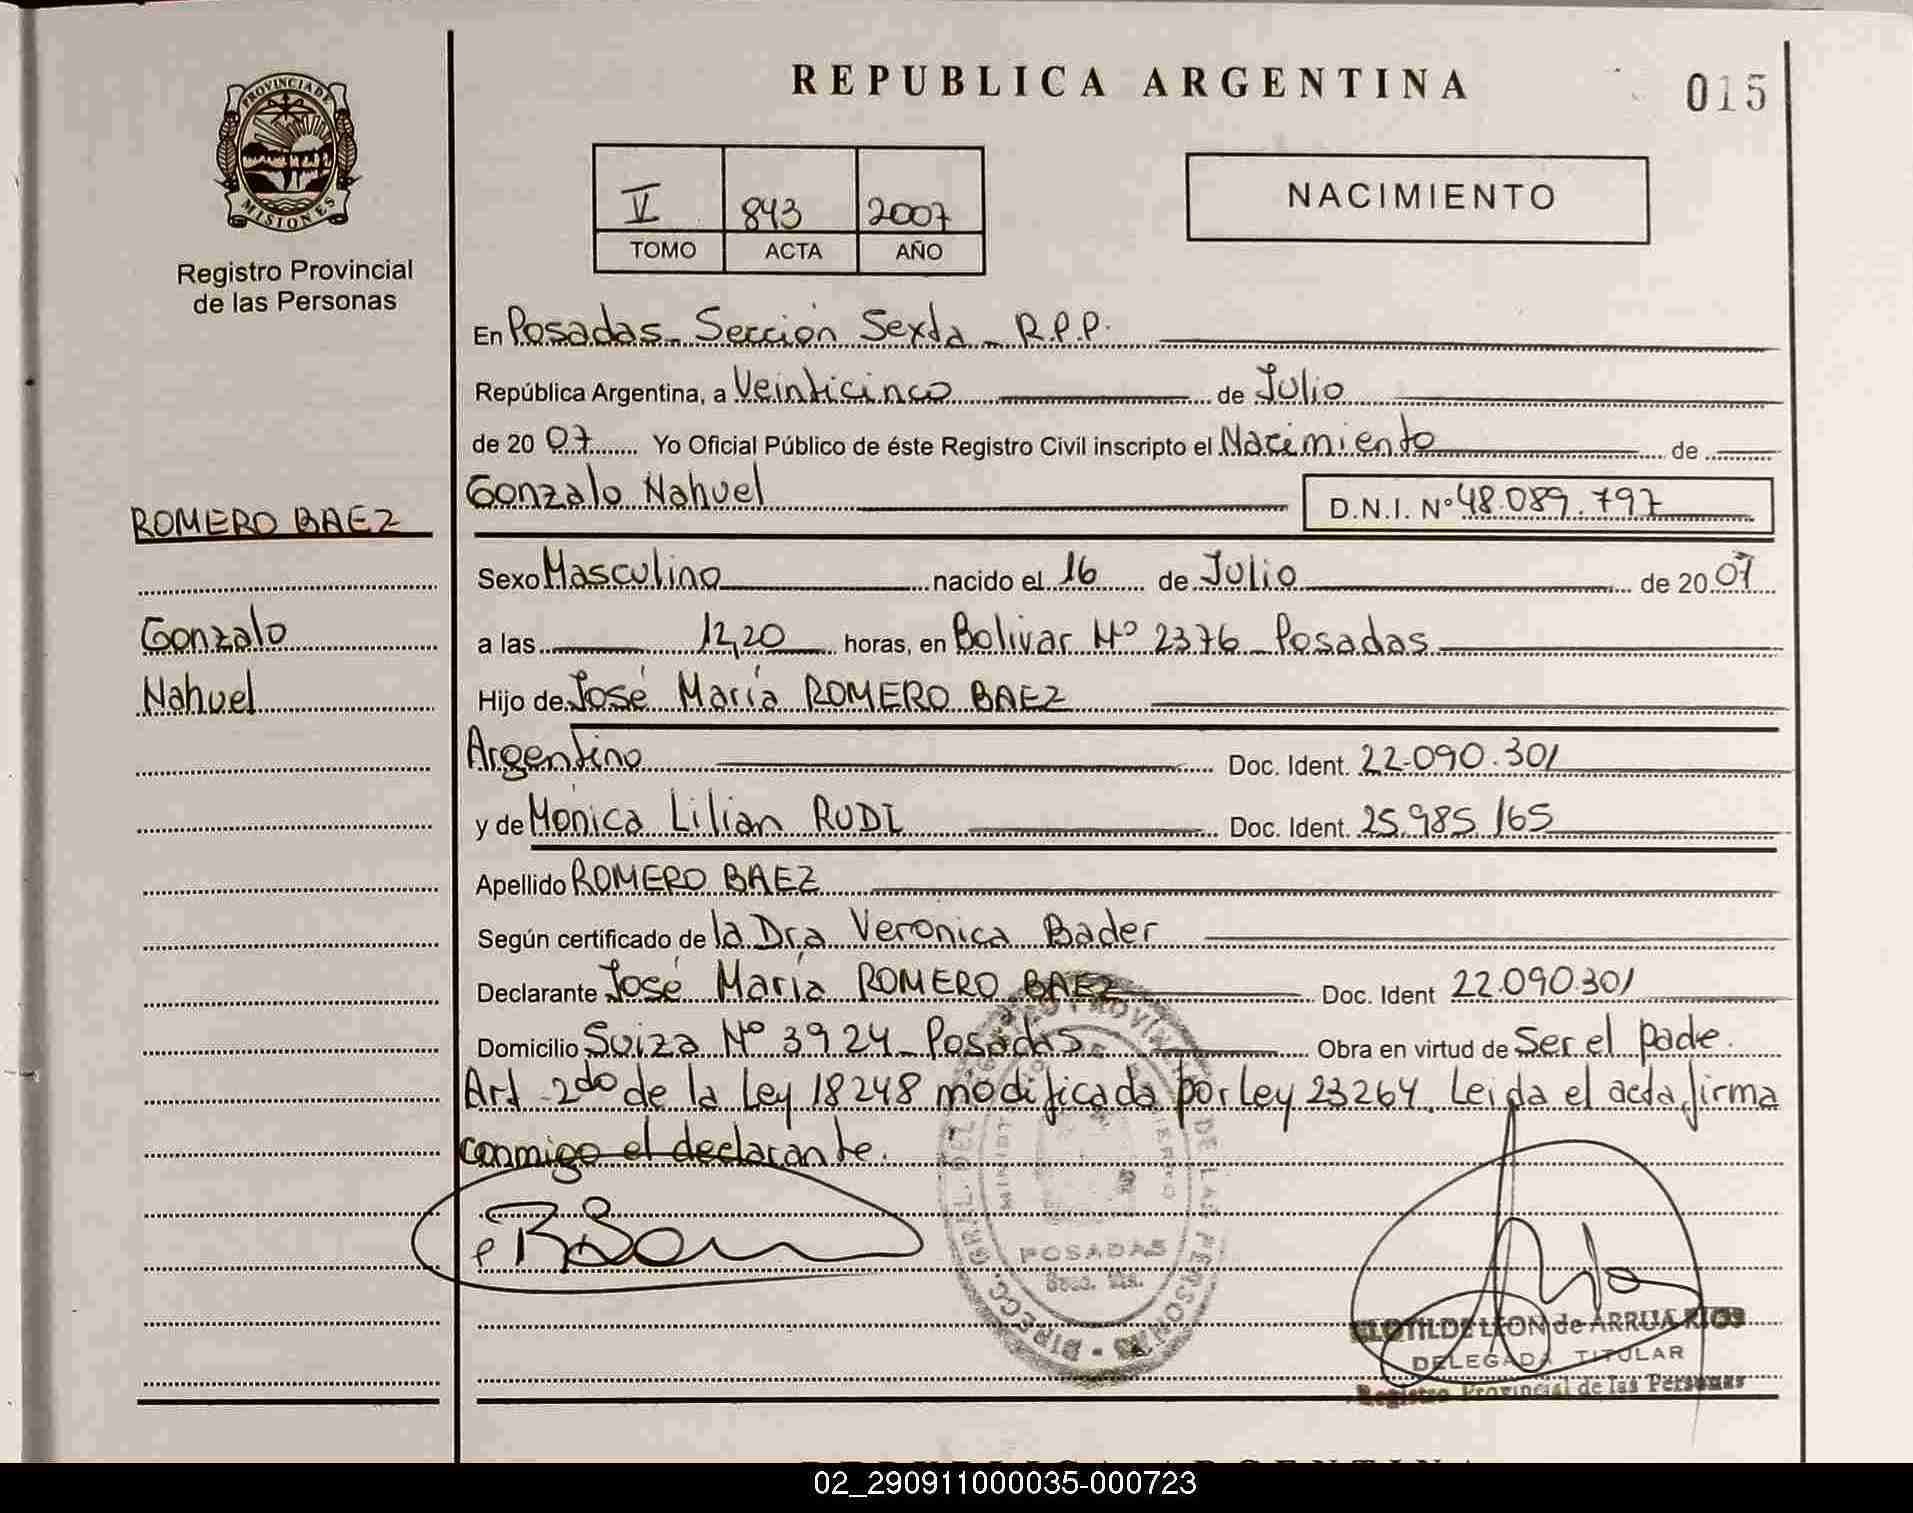 PROVINCIA DE
MISIONES
Registro Provincial
de las Personas
REPUBLICA ARGENTINA
015
V 843 2007
TOMO ACTA AÑO
NACIMIENTO
En Posadas - Sección Sexta - R.P.P.
República Argentina, a Veinticinco de Julio
de 20 07 Yo Oficial Público de éste Registro Civil inscripto el Nacimiento de
Gonzalo Nahuel D.N.I. Nº 48.089.797
ROMERO BAEZ
Gonzalo
Nahuel
Sexo Masculino nacido el 16 de Julio de 20 07
a las 12,20 horas, en Bolivar Nº 2376 - Posadas
Hijo de José María ROMERO BAEZ
Argentino Doc. Ident. 22.090.301
y de Mónica Lilian RUDI Doc. Ident. 25.985.165
Apellido ROMERO BAEZ
Según certificado de la Dra Veronica Bader
Declarante José María ROMERO BAEZ Doc. Ident 22.090.301
Domicilio Suiza Nº 3924 - Posadas Obra en virtud de Ser el padre.
Art 2do de la Ley 18248 modificada por Ley 23264. Leida el acta, firma
conmigo el declarante.
DIRECC. GRAL. DEL REGISTRO PROVINCIAL DE LAS PERSONAS
POSADAS
CLOTILDE LEON de ARRUA RIOS
DELEGADA TITULAR
Registro Provincial de las Personas
REPUBLICA ARGENTINA
02_290911000035-000723